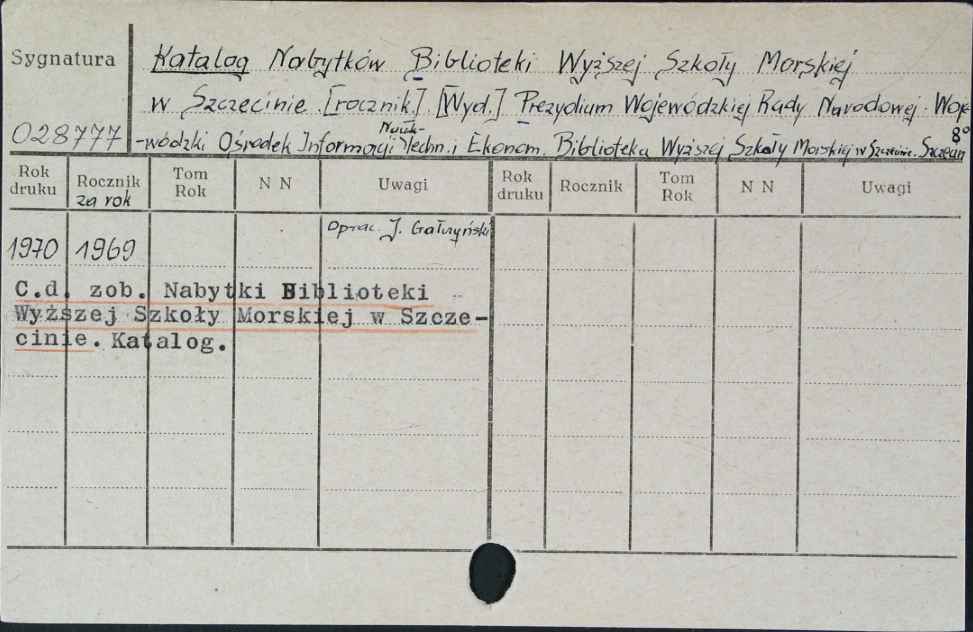 Sygnatura
Katalog Nabytków Biblioteki Wyższej Szkoły Morskiej
w Szczecinie. [rocznik]. [Wyd.] Prezydium Wojewódzkiej Rady Narodowej. Woje-
028777
-wódzki Ośrodek Informacji Nauk.-Techn. i Ekonom. Biblioteka Wyższej Szkoły Morskiej w Szczecinie. Szczecin
8°
Rok druku Rocznik za rok Tom Rok N N Uwagi Rok druku Rocznik Tom Rok N N Uwagi
1970 1969 Oprac. J. Gałczyński
C.d. zob. Nabytki Biblioteki
Wyższej Szkoły Morskiej w Szcze-
cinie. Katalog.